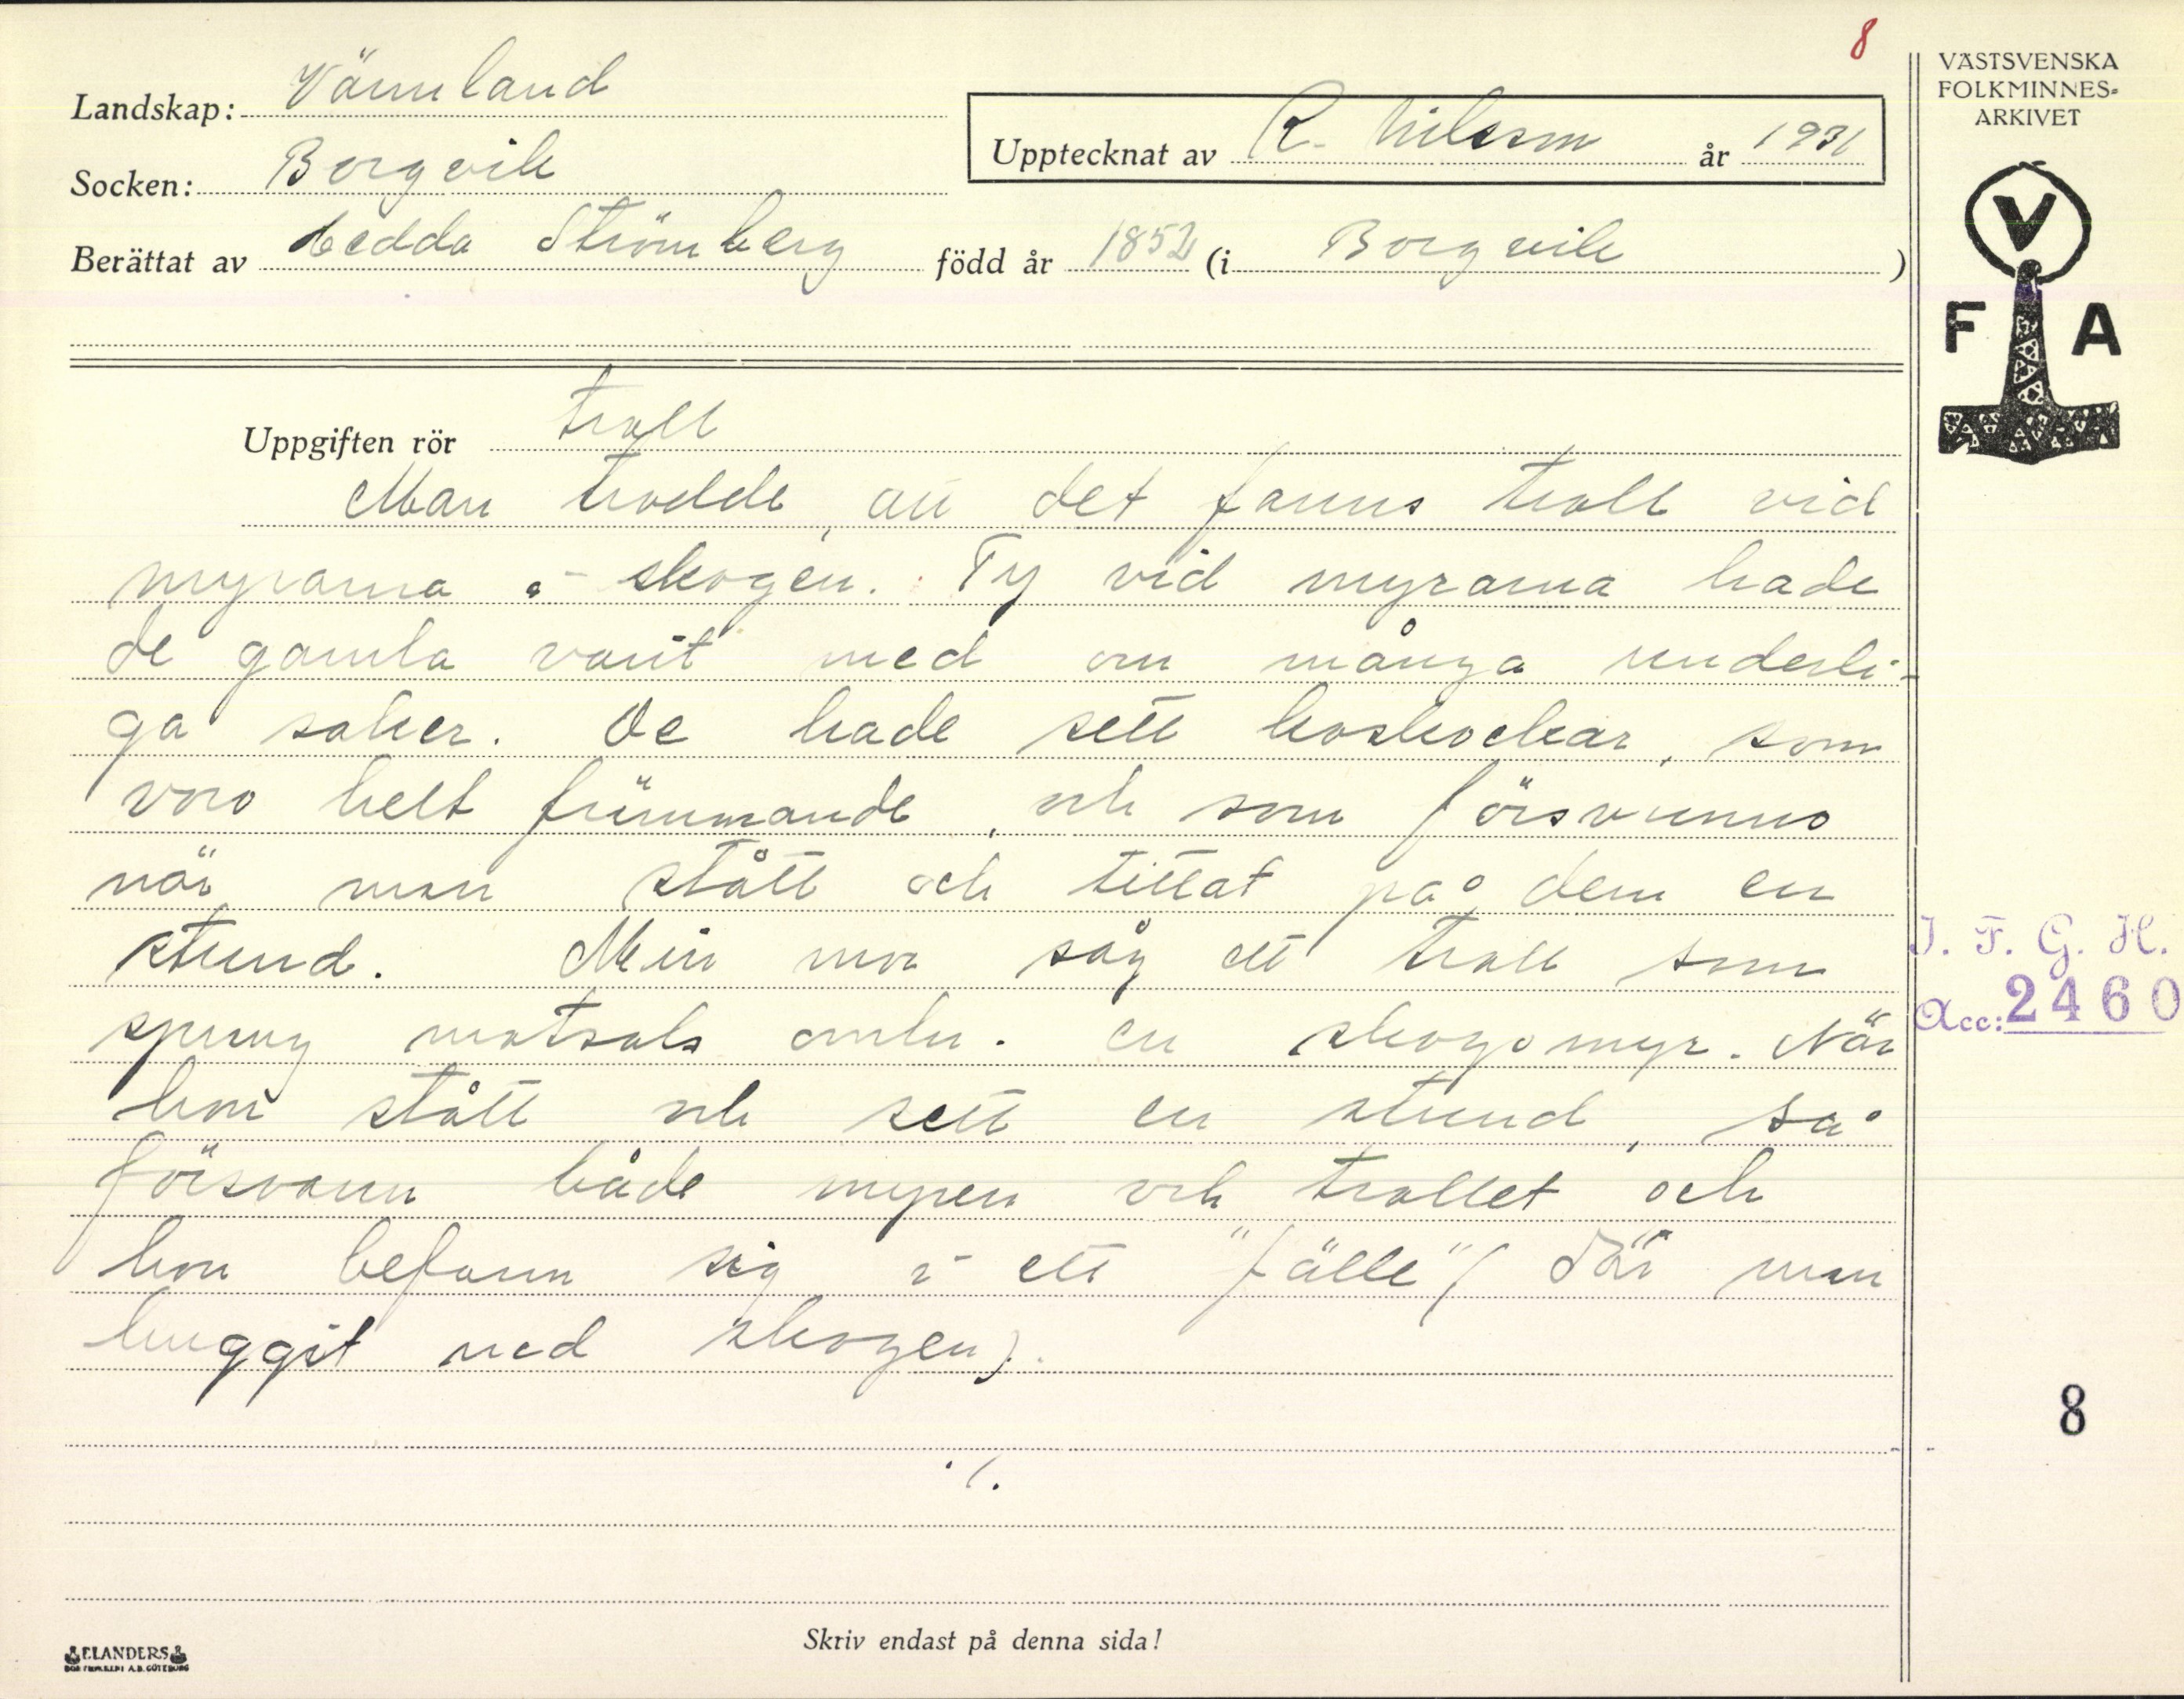 8
Landskap: Värmland
Socken: Borgvik
Upptecknat av R. Nilsson år 1931
Berättat av Hedda Strömberg född år 1852 (i Borgvik )
VÄSTSVENSKA
FOLKMINNES-
ARKIVET
V
F A
Uppgiften rör troll
Man trodde, att det fanns troll vid
myrarna i skogen. Ty vid myrarna hade
de gamla varit med om många underli-
ga saker. De hade sett koskockar, som
voro helt främmande, och som försvunno
när man stått och tittat på dem en
stund. Min mor såg ett troll som
sprang motsols omkr. en skogsmyr. När
hon stått och sett en stund, så
försvann både myren och trollet och
hon befann sig i ett "fälle" (där man
huggit ned skogen).
./.
I. F. G. H.
Acc: 2460
8
Skriv endast på denna sida!
ELANDERS
BOKTRYCKERI A.B. GÖTEBORG